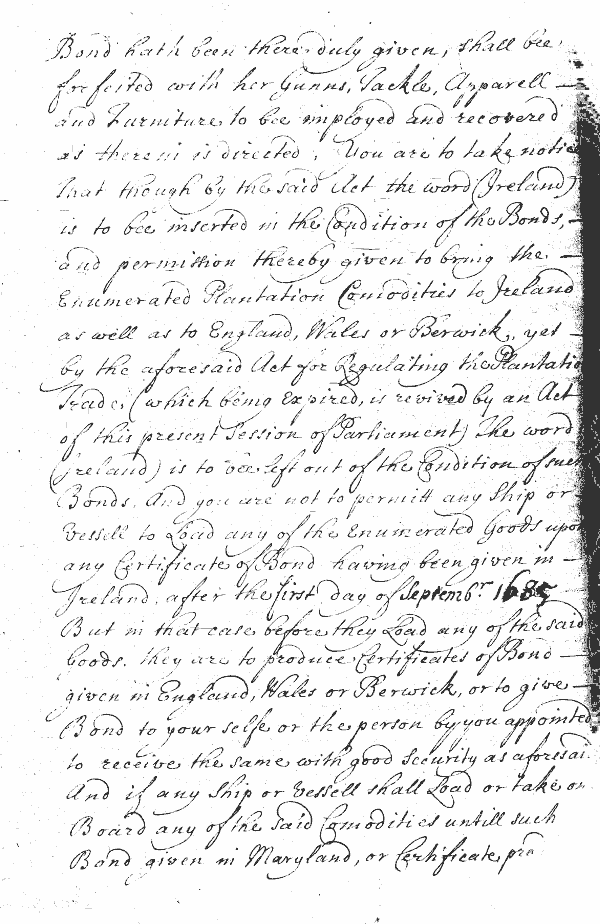 Bond hath been there duly given, shall bee
forfeited with her Gunns, Tackle, Apparell
and Furniture to bee imployed and recovered
as therein is directed, You are to take notice
that though by the said Act the word (Ireland)
is to bee inserted in the Condition of the Bonds,
and permission thereby given to bring the
Enumerated Plantation Comodities to Ireland
as well as to England, Wales or Berwick, yet
by the aforesaid Act for Regulating the Plantatio
Trade, (which being Expired, is revived by an Act
of this present Session of Parliament) The word
(Ireland) is to bee left out of the Condition of such
Bonds, And you are not to permitt any Ship or
Vessell to Load any of the Enumerated Goods upon
any Certificate of Bond having been given in
Ireland, after the first day of Septembr 1685
But in that case before they Load any of the said
Goods, they are to produce Certificates of Bond
given in England, Wales or Berwick, or to give
Bond to your selfe or the person by you appointed
to receive the same with good Security as aforesai
And if any Ship or Vessell shall Load or take on
Board any of the said Comodities untill such
Bond given in Maryland, or Certificate pro